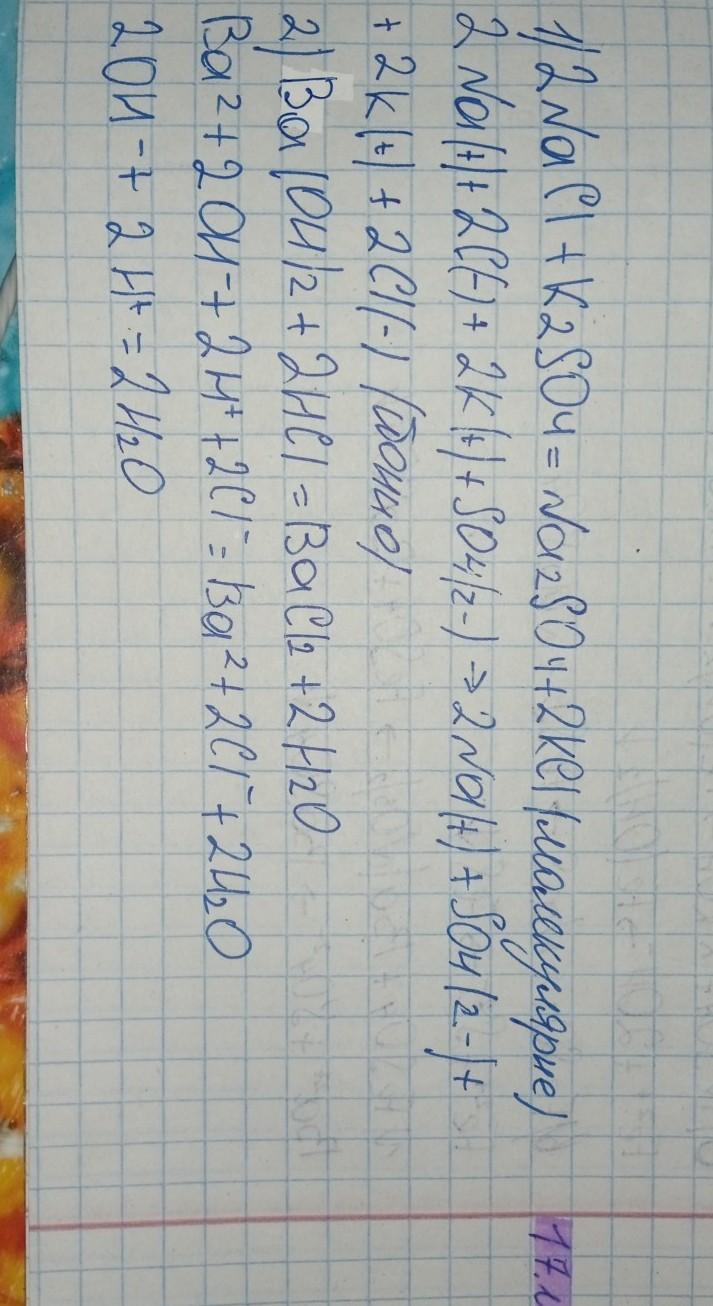 17.1
1) 2NaCl + K2SO4 = Na2SO4 + 2KCl (молекулярне)
2Na(+) + 2Cl(-) + 2K(+) + SO4(2-) → 2Na(+) + SO4(2-) +
+ 2K(+) + 2Cl(-) (йонно)
2) Ba(OH)2 + 2HCl = BaCl2 + 2H2O
Ba²+ 2OH⁻ + 2H⁺ + 2Cl⁻ = Ba²+ 2Cl⁻ + 2H2O
2OH⁻ + 2H⁺ = 2H2O